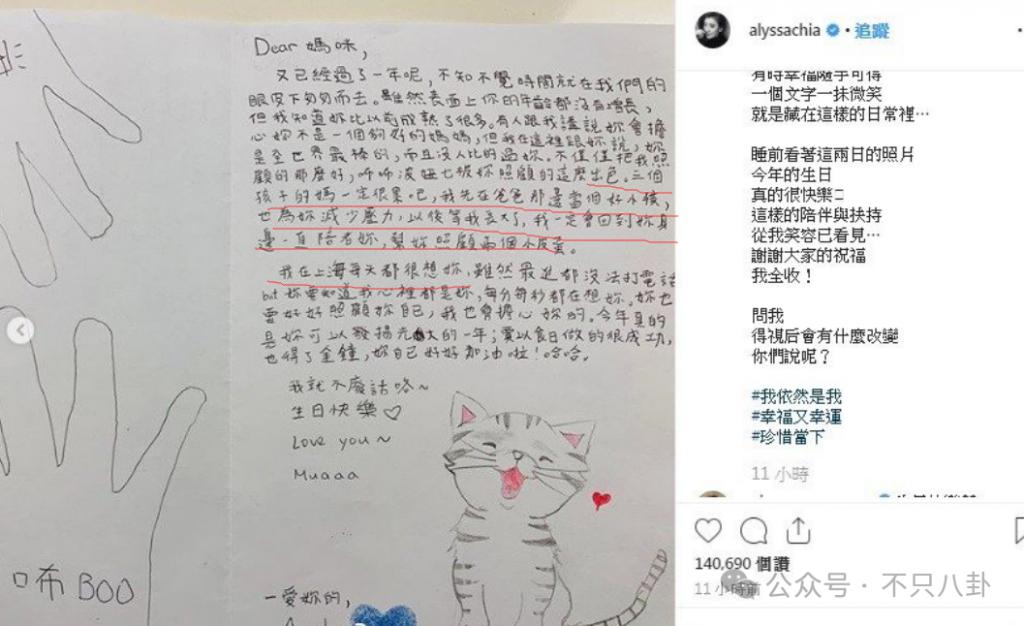 Dear 媽咪,
又已經過了一年呢,不知不覺時間就在我們的
眼皮下匆匆而去。雖然表面上你的年齡都沒有增長,
但我知道妳比以前成熟了很多。有人跟我講說妳會擔
心妳不是一個夠好的媽媽,但我在這裡跟妳說,妳
是全世界最棒的,而且沒人比的過妳。不僅僅把我照
顧的那麼好,咘咘波妞也被妳照顧的這麼出色。三個
孩子的媽一定很累吧,我先在爸爸那邊當個好小孩,
也為妳減少壓力,以後等我長大了,我一定會回到妳身
邊一直陪著妳,幫妳照顧兩個小皮蛋。
我在上海每天都很想妳,雖然最近都沒法打電話
but 妳要知道我心裡都是妳,每分每秒都在想妳。妳也
要好好照顧妳自己,我也會擔心妳的。今年真的
是妳可以發揚光大的一年;愛以食日做的很成功,
也得了金鐘,妳自己好好加油啦!哈哈。
我就不廢話咯~
生日快樂♡
Love you~
Muaaa
一愛妳的,
咘 BOO
alyssachia • 追蹤
有時幸福隨手可得
一個文字一抹微笑
就是藏在這樣的日常裡…
睡前看著這兩日的照片
今年的生日
真的很快樂
這樣的陪伴與扶持
從我笑容已看見…
謝謝大家的祝福
我全收!
問我
得視后會有什麼改變
你們說呢?
#我依然是我
#幸福又幸運
#珍惜當下
11 小時
140,690 個讚
11 小時前
公众号 · 不只八卦